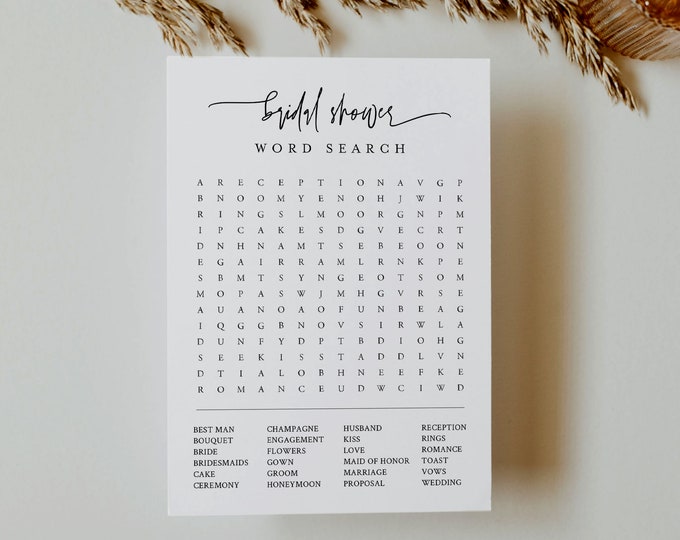 bridal shower
WORD SEARCH
A R E C E P T I O N A V G P
B N O O M Y E N O H J W I K
R I N G S L M O O R G N P M
I P C A K E S D G V E C R T
D N H N A M T S E B E O O N
E G A I R R A M L R N K P E
S B M T S Y N G E O T S O M
M O P A S W J M H G V R S E
A U A N O A O F U N B E A G
I Q G G B N O V S I R W L A
D U N F Y D P T B D I O H G
S E E K I S S T A D D L V N
D T I A L O B H N E E F K E
R O M A N C E U D W C I W D
BEST MAN CHAMPAGNE HUSBAND RECEPTION
BOUQUET ENGAGEMENT KISS RINGS
BRIDE FLOWERS LOVE ROMANCE
BRIDESMAIDS GOWN MAID OF HONOR TOAST
CAKE GROOM MARRIAGE VOWS
CEREMONY HONEYMOON PROPOSAL WEDDING